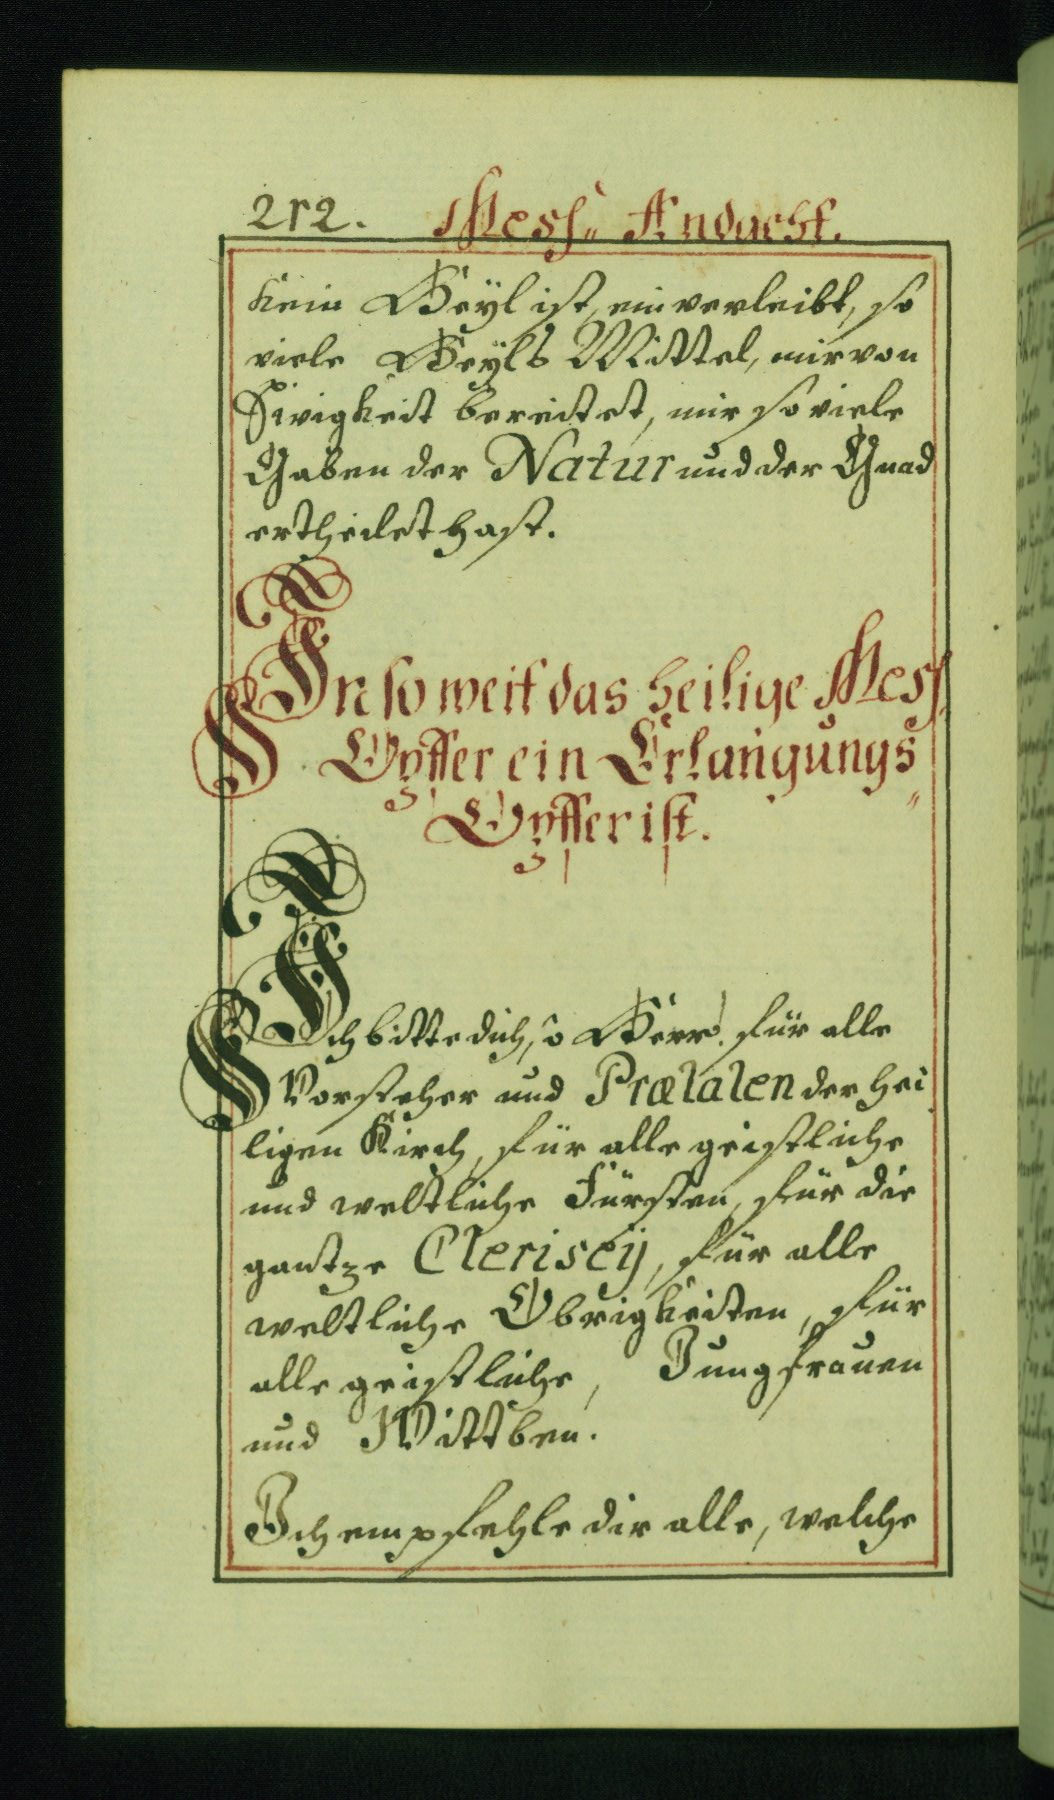 212. Mess„ Andacht.
kein Heÿl ist, einverleibt, so
viele Heÿls Mittel, mir von
Ewigkeit bereitet, mir so viele
Gaben der Natur und der Gnad
ertheilet hast.
In so weit das heilige Mess
Opffer ein Erlangungs„
Opffer ist.
Ich bitte dich, ô Herr! für alle
Vorsteher und Prælaten der hei
ligen Kirch, für alle geistliche
und weltliche Fürsten, für die
gantze Cleriseÿ, für alle
weltliche Obrigkeiten, für
alle geistliche, Jungfrauen
und Wittben.
Ich empfehle dir alle, welche